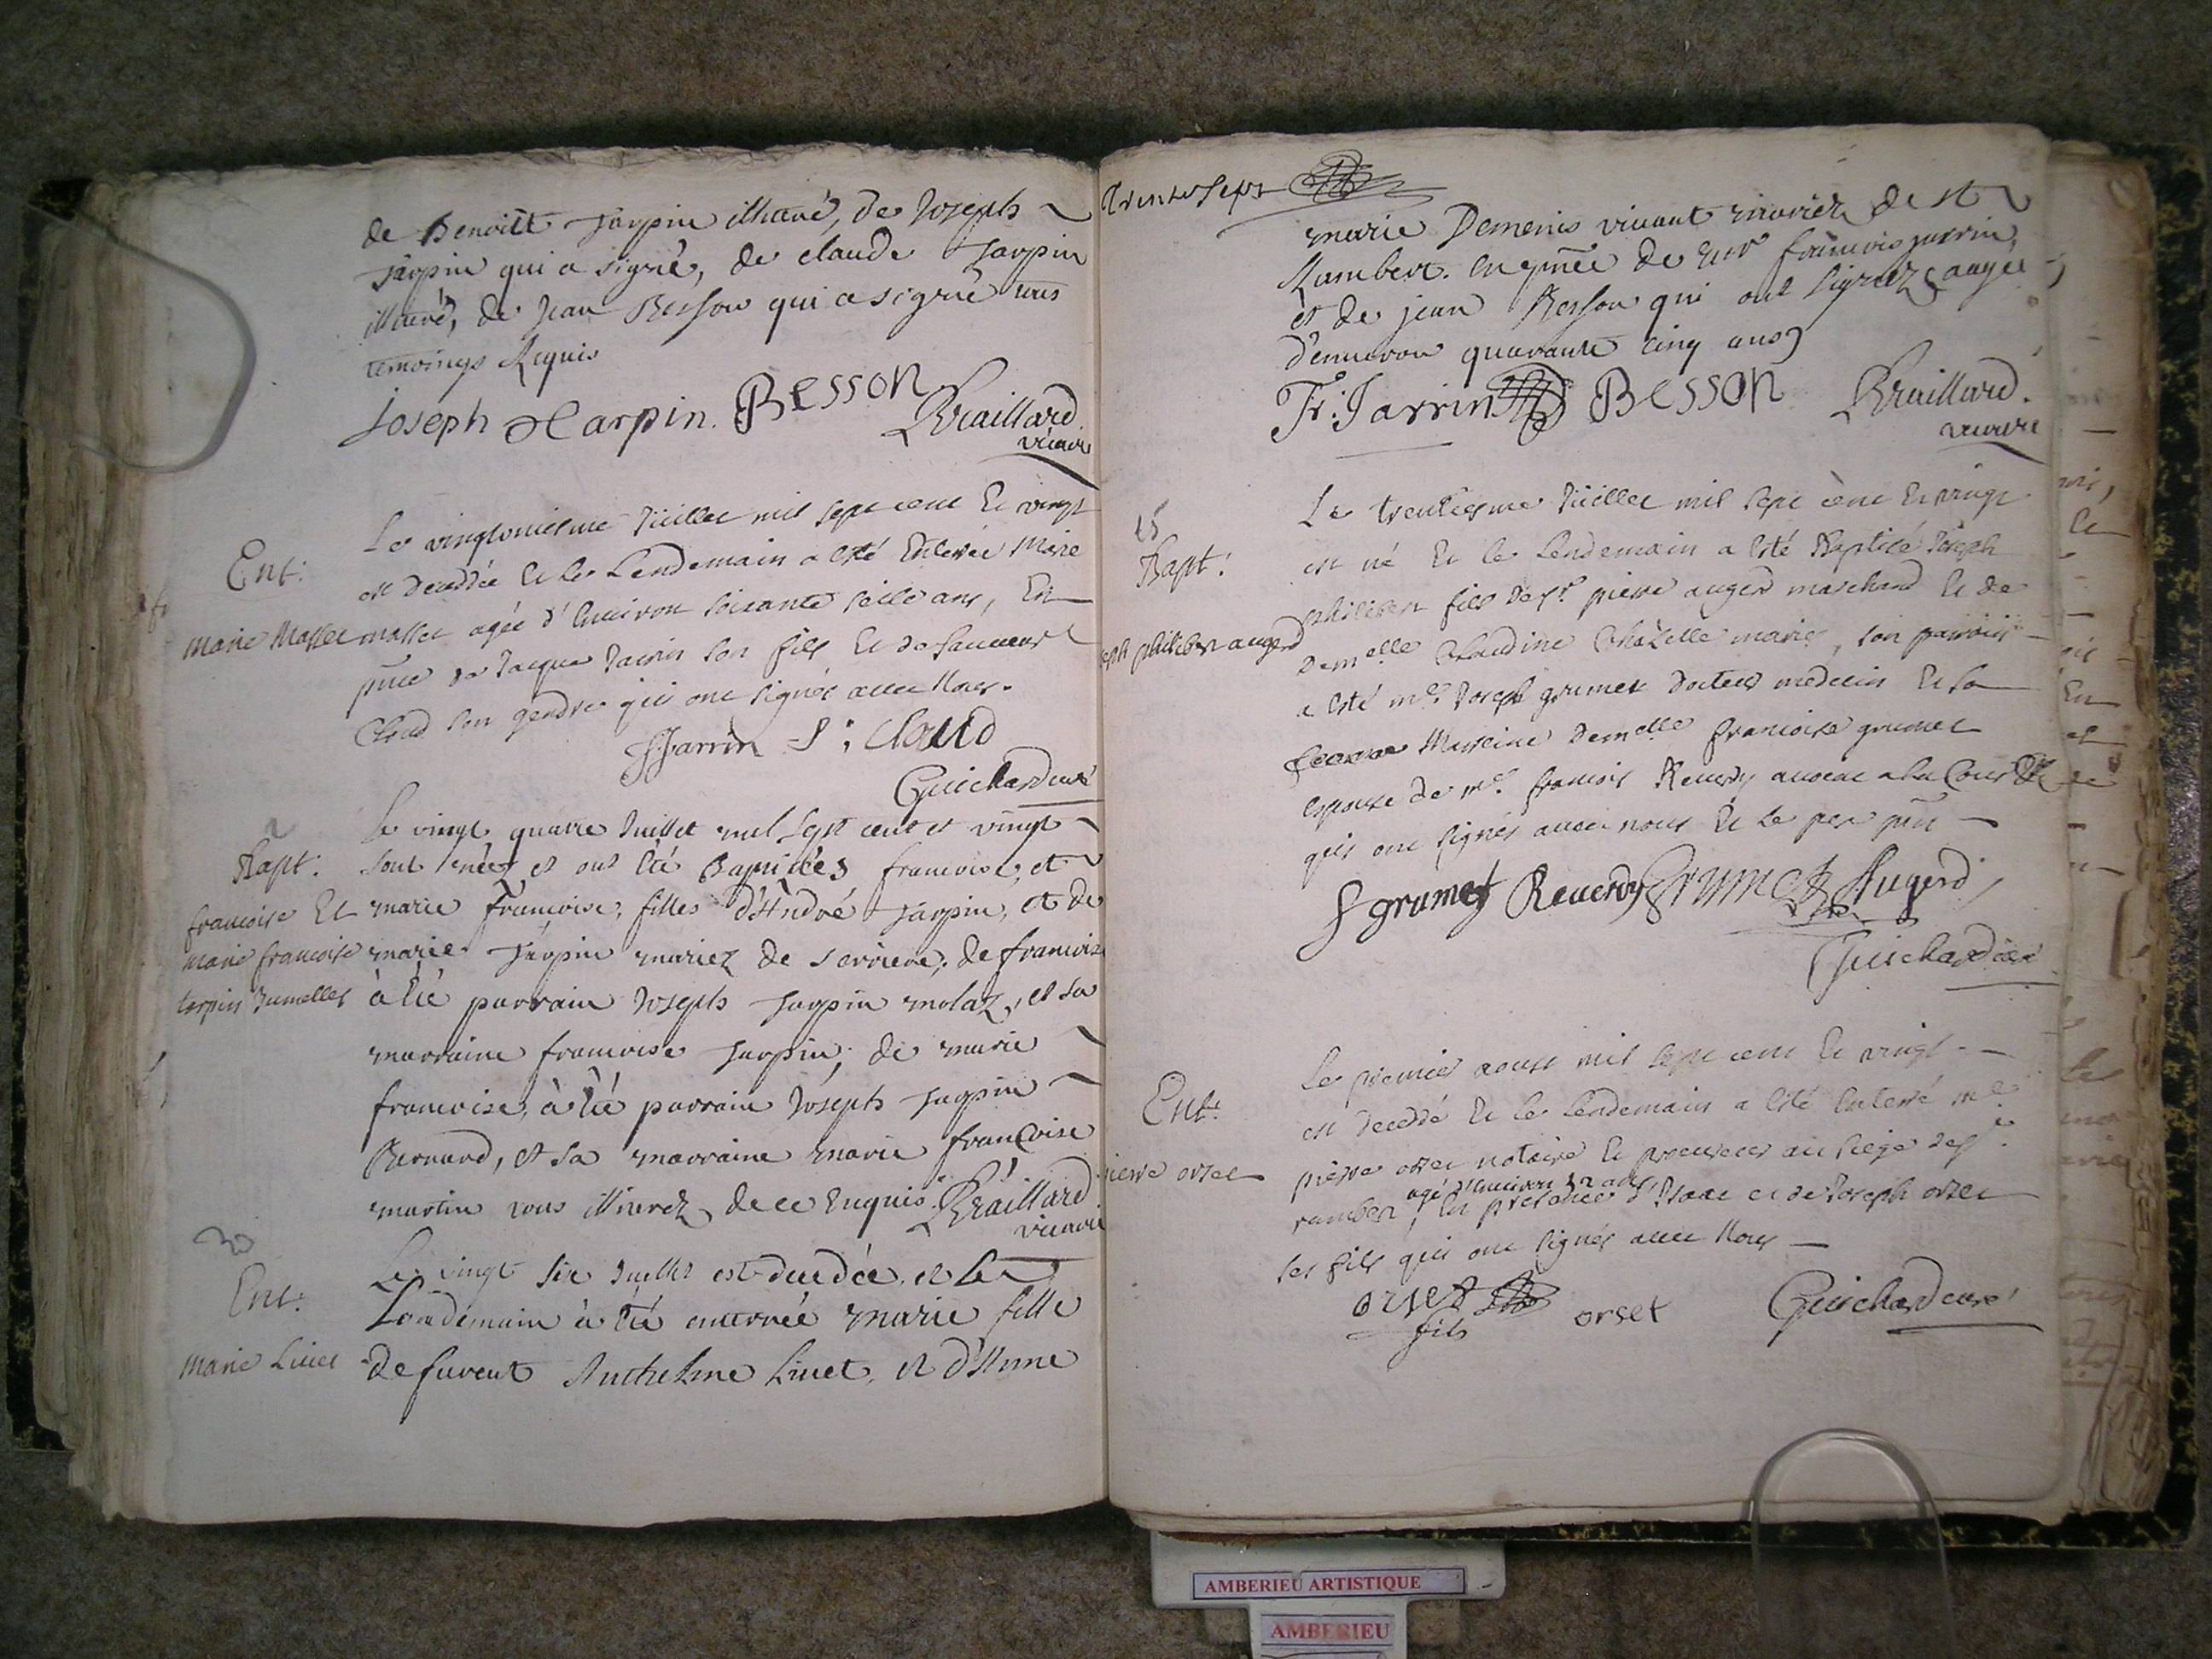 de Benoitt Harpin illitéré, de Joseph
Harpin qui a signé, de claude Harpin
illitéré, de Jean Besson qui a signé tous
temoings Requis
Joseph Harpin. BESSON Braillard
vicaire
Ent:
Marie Masset
Le vingtoniesme Juillet mil sept cent Et vingt
est decedée Et le Lendemain a esté Enterrée Marie
masset agée d'Environ soixante seize ans, En
pnce de Jacque Jarrin son fils Et de
Cloud son gendre qui ont signés avec Nous.
Jarrin St: Cloud
Guichard curé
2
Bapt:
francoise Et
marie francoise
harpin Jumelles
Le vingt quatre Juillet mil sept cent et vingt
sont néez et ont été Baptisées francoise, et
marie francoise, filles d'André Harpin, et de
marie Harpin mariez de serriere, de francoise
à été parrain Joseph Harpin molaz, et sa
marraine francoise Harpin; de marie
francoise, à été parrain Joseph Harpin
Bernard, et sa marraine marie francoise
martin tous illiterez de ce Enquis. Braillard
vicaire
3
Ent:
Marie Livet
Le vingt six Juillet est decedée, et le
Landemain à été enterrée marie fille
de furent Anthelme Livet, et d'Anne
trente sept
marie Demenis vivant mariez de st
Rambert. en pnce de francois jarrin,
et de jean Besson qui ont signez (aagée
d'environ quarante cinq ans)
Fr: Jarrin BESSON Braillard.
vicaire
15
Bapt:
Joseph philibert augerd
Le trentiesme Juillet mil sept cent Et vingt
est né Et le Lendemain a esté Baptisé Joseph
philibert fils de Sr. pierre augerd marchand Et de
Demelle Claudine Chazelle mariés, son parrain
a esté mre Joseph grumet docteur medecin Et sa
Marreine Demelle francoise grumet
espouse de mre. francois Reverdy avocat a la Cour
qui ont signés avec nous Et le pere pnt
F grumet Reverdy Grumet Augerd
Guichard curé
Ent:
pierre orset
Le premier aoust mil sept cent Et vingt
est decedé Et le Lendemain a esté Enterré me
pierre orset notaire Et procureur au siege de st.
agé d'Environ 52 ans
rambert, En presence d'Isaac et de Joseph orset
ses fils qui ont signés avec Nous
orset
fils
orset
Guichard curé
AMBERIEU ARTISTIQUE
AMBERIEU